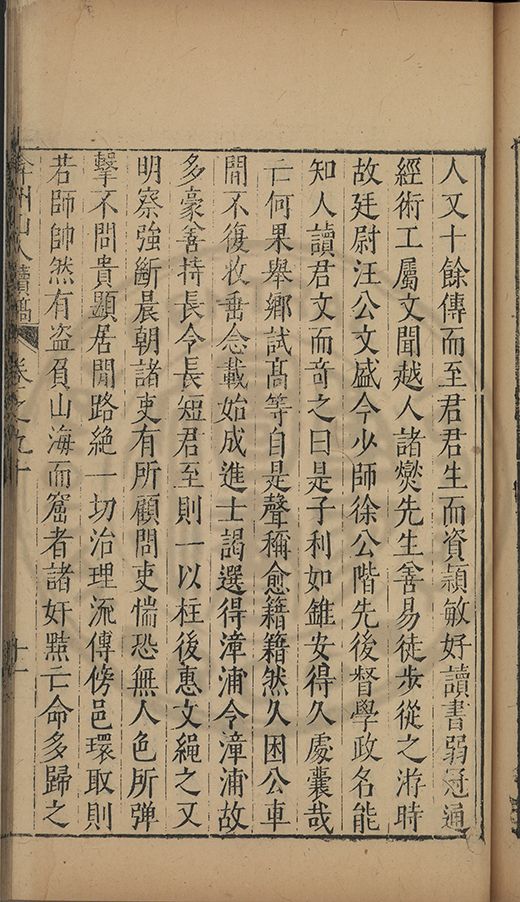 人又十餘傳而至君君生而資頴敏好讀書弱冠通
經術工屬文聞越人諸爕先生善易徒步從之游時
故廷尉汪公文盛今少師徐公階先後督學政名能
知人讀君文而奇之曰是子利如錐安得久處囊哉
亡何果舉鄉試髙等自是聲稱愈籍籍然久困公車
間不復收垂念載始成進士謁選得漳浦令漳浦故
多豪善持長令長短君至則一以柱後惠文繩之又
明察強斷晨朝諸吏有所顧問吏惴恐無人色所弹
擊不問貴顯居閒路絶一切治理流傳傍邑環取則
若師帥然有盗負山海而窟者諸奸黠亡命多歸之
弇州山人續稿 卷之九十 十一